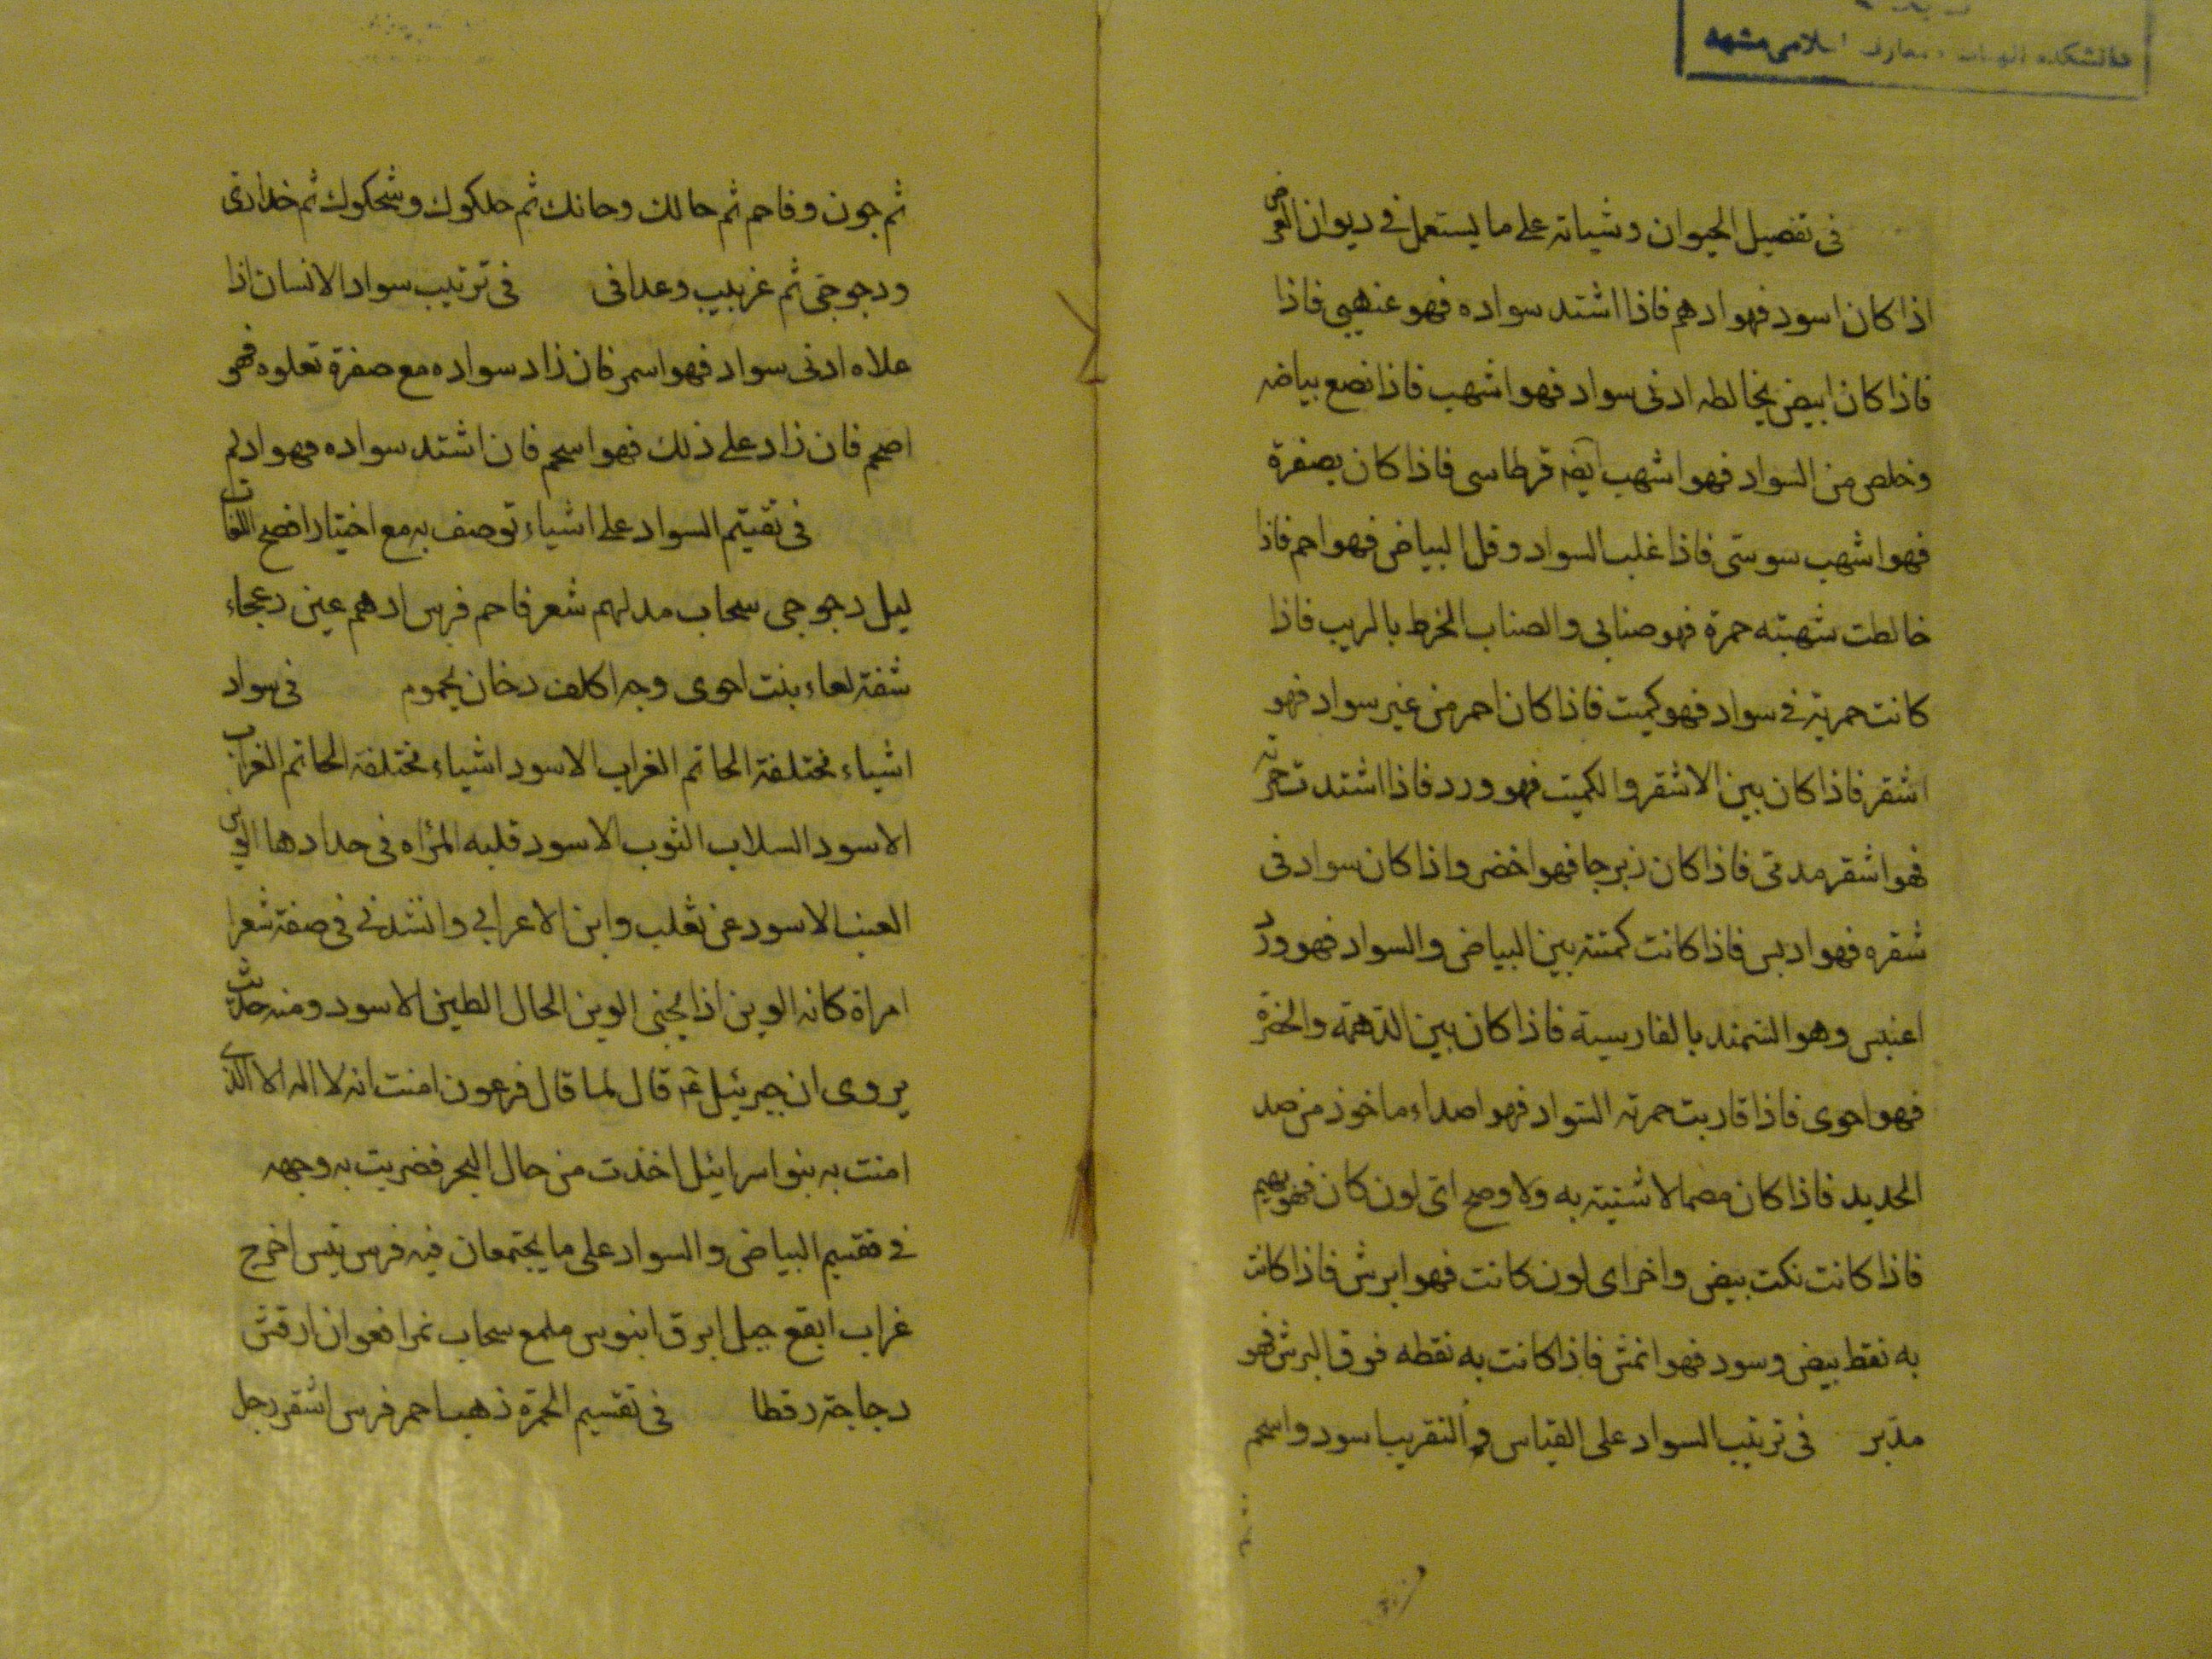 دانشكده الهيات و معارف اسلامى مشهد
فى تفصيل الحيوان وشياته على ما يستعمل فى ديوان العرض
اذا كان اسود فهو ادهم فاذا اشتد سواده فهو غيهبى فاذا
فاذا كان ابيض يخالطه ادنى سواد فهو اشهب فاذا نصع بياضه
وخلص من السواد فهو اشهب ايضه قرطاسى فاذا كان يصفرة
فهو اشهب سوسنى فاذا غلب السواد وقل البياض فهو احم فاذا
خالطت شهبته حمرة فهو صنابى والصناب الخرط بالزبيب فاذا
كانت حمرته فى سواد فهو كميت فاذا كان احمر من غير سواد فهو
اشقر فاذا كان بين الاشقر والكميت فهو ورد فاذا اشتدت حمرته
فهو اشقر مدمى فاذا كان زبرجا فهو اخضر واذا كان سواد فى
شقره فهو ادبس فاذا كانت كمتته بين البياض والسواد فهو ورد
اغبس وهو السمند بالفارسية فاذا كان بين الدهمة والخضرة
فهو احوى فاذا قاربت حمرته السواد فهو اصداء ماخوذ من صد
الحديد فاذا كان مصمتا لاشية به ولا وضح اى لون كان فهو بهيم
فاذا كانت نكت بيض واخراى لون كانت فهو ابرش فاذا كانت
به نقط بيض وسود فهو انمش فاذا كانت به نقطه فوق البرش فهو
مدنر فى ترتيب السواد على القياس والتقريب اسود واسحم
ثم جون وفاحم ثم حالك وحانك ثم حلكوك وسحكوك ثم خدارى
ودجوجى ثم غربيب وعدافى فى ترتيب سواد الانسان اذا
علاه ادنى سواد فهو اسمر فان زاد سواده مع صفرة تعلوه فهو
اصحم فان زاد على ذلك فهو اسحم فان اشتد سواده فهو ادلم
فى تقيتم السواد على اشياء توصف به مع اختيار افصح اللغات
ليل دجوجى سحاب مدلهم شعر فاحم فرس ادهم عين دعجاء
شفة لعاء بنت احوى وجه اكلف دخان يحموم فى سواد
اشياء مختلفة الحاتم الغراب الاسود اشياء مختلفة الحاتم الغراب
الاسود السلاب الثوب الاسود قلبه المراه فى حدادها الوين
العنب الاسود عن ثعلب وابن الاعرابى وانشدنى فى صفة شعر
امراة كانه الوين اذا يجنى الوين الحال الطين الاسود ومنه حديث
يروى ان جبرئيل عم قال لما قال فرعون امنت انه لا اله الا الذى
امنت به بنو اسرائيل اخذت من حال البحر فضربت به وجهه
فى تقسيم البياض والسواد على ما يجتمعان فيه فرس تيس اخرج
غراب ابقع جبل ابرق ابنوس ملمع سحاب نمر افعوان ارقش
دجاجة رقطا فى تقسيم الحمرة ذهب احمر فرس اشقر رجل